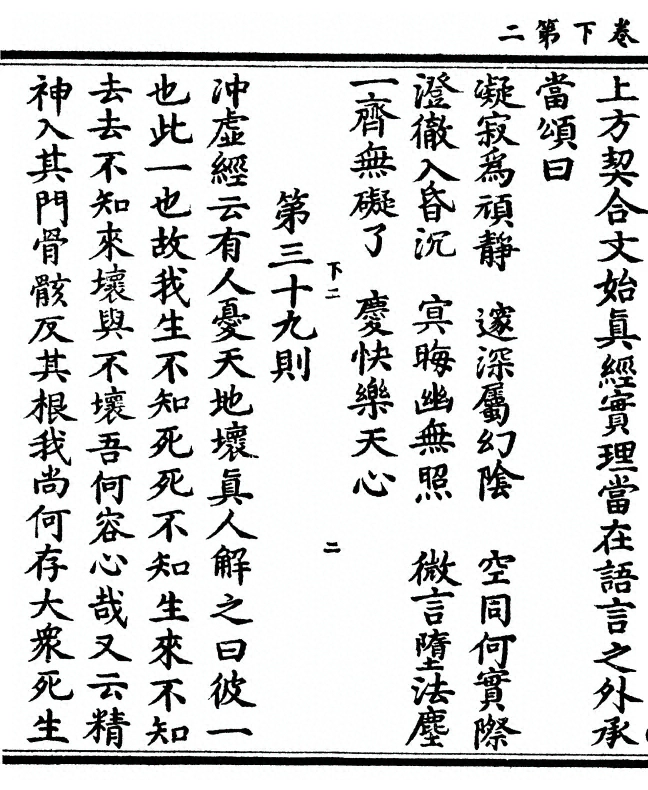 卷下第二
上方契合文始眞經實理當在語言之外承
當頌曰
凝寂爲頑靜 邃深屬幻陰 空同何實際
澄徹入昏沉 冥晦幽無照 微言墮法塵
一齊無礙了 慶快樂天心
下二
二
第三十九則
沖虛經云有人憂天地壞眞人解之曰彼一
也此一也故我生不知死死不知生來不知
去去不知來壞與不壞吾何容心哉又云精
神入其門骨骸反其根我尚何存大衆死生